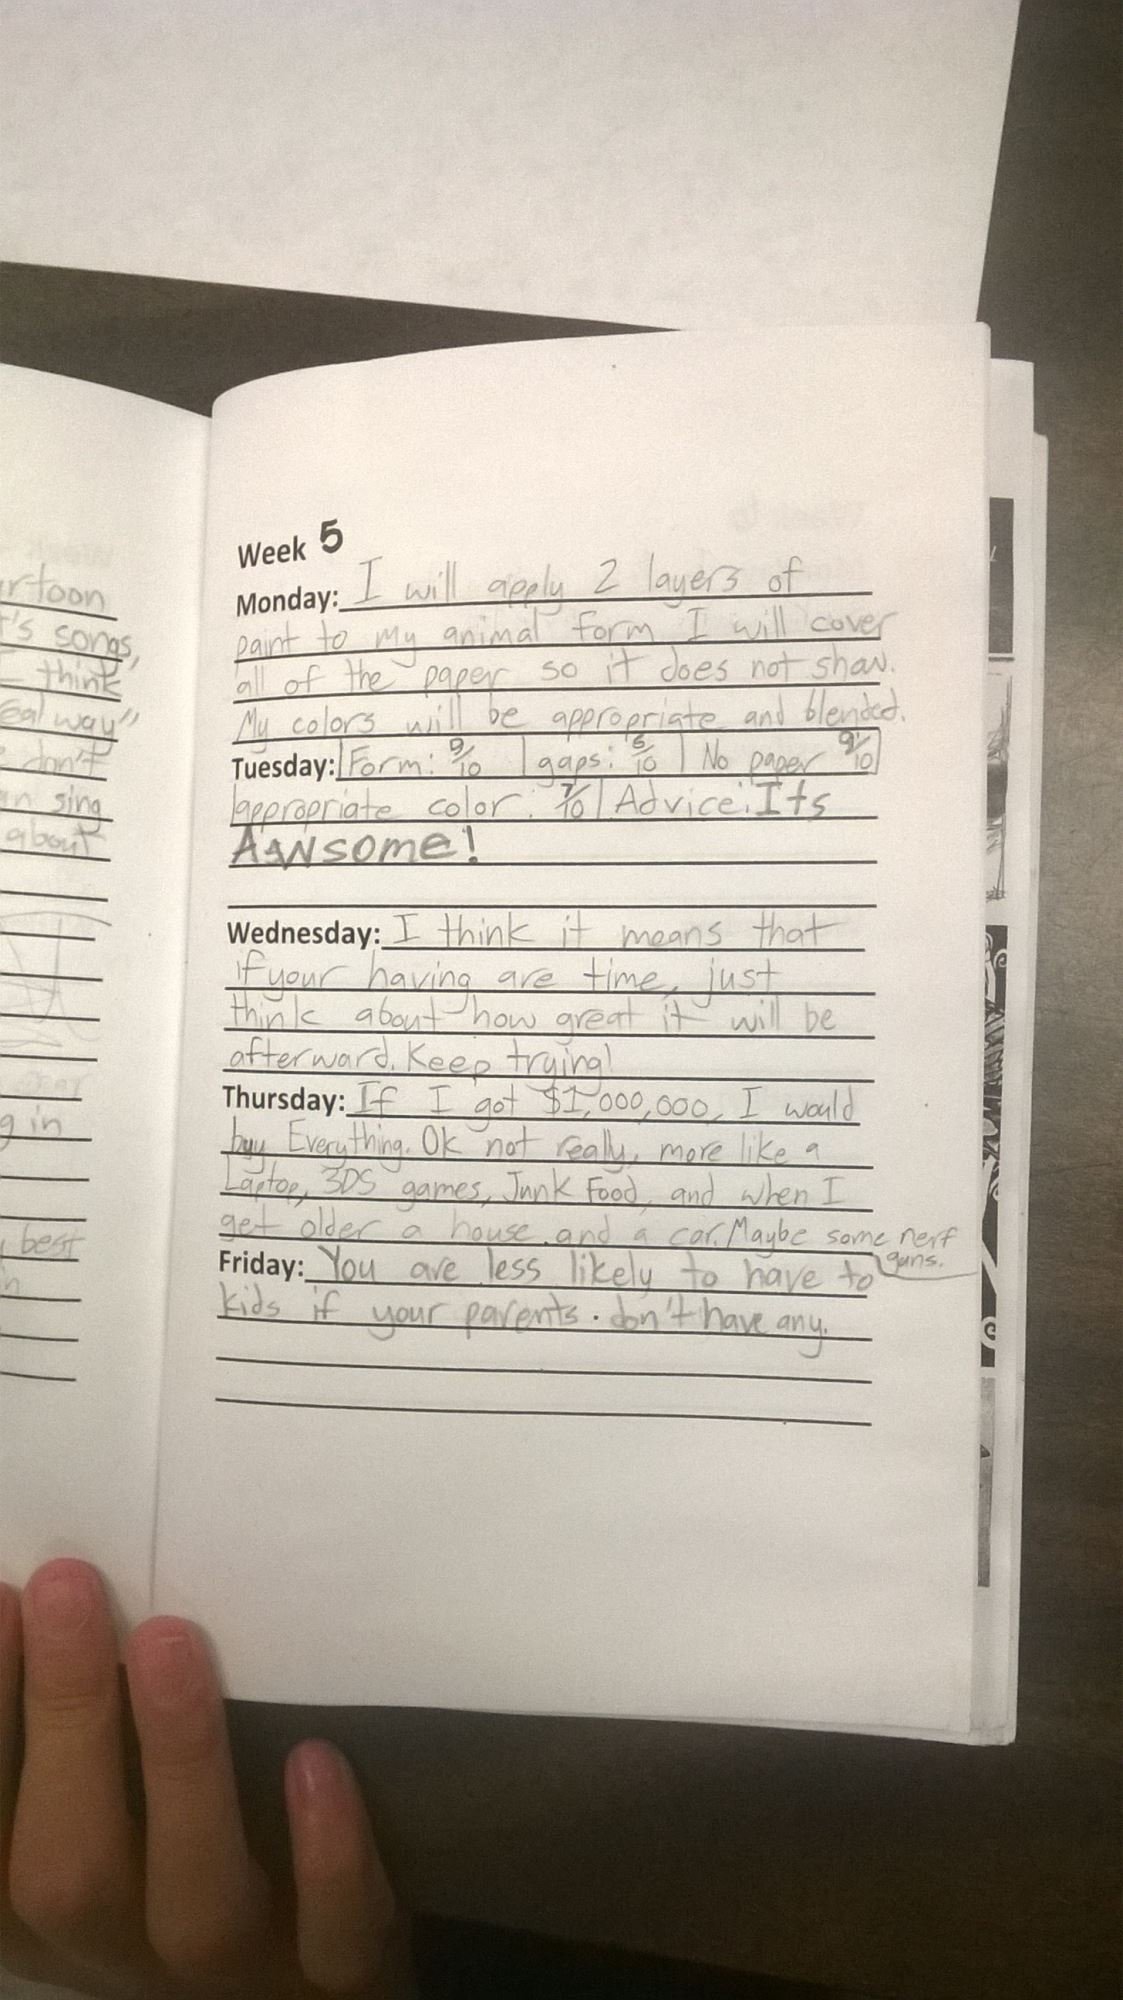 rtoon
's songs,
I think
eal way"
don't
an sing
about
g in
, best
n
Week 5
Monday: I will apply 2 layers of
paint to my animal form I will cover
all of the paper so it does not show.
My colors will be appropriate and blended.
Tuesday: Form: 9/10 | gaps: 5/10 | No paper 9/10
appropriate color: 7/10 | Advice: Its
Awsome!
Wednesday: I think it means that
if your having are time, just
think about how great it will be
afterward. Keep trying!
Thursday: If I got $1,000,000, I would
buy Everything. Ok not really, more like a
Laptop, 3DS games, Junk Food, and when I
get older a house and a car. Maybe some nerf
guns.
Friday: You are less likely to have to
kids if your parents. don't have any.